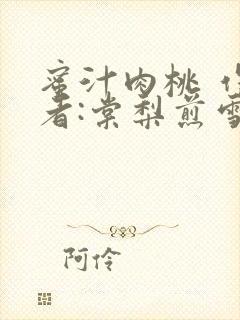 蜜汁肉桃 作
者:棠梨煎雪
阿伶